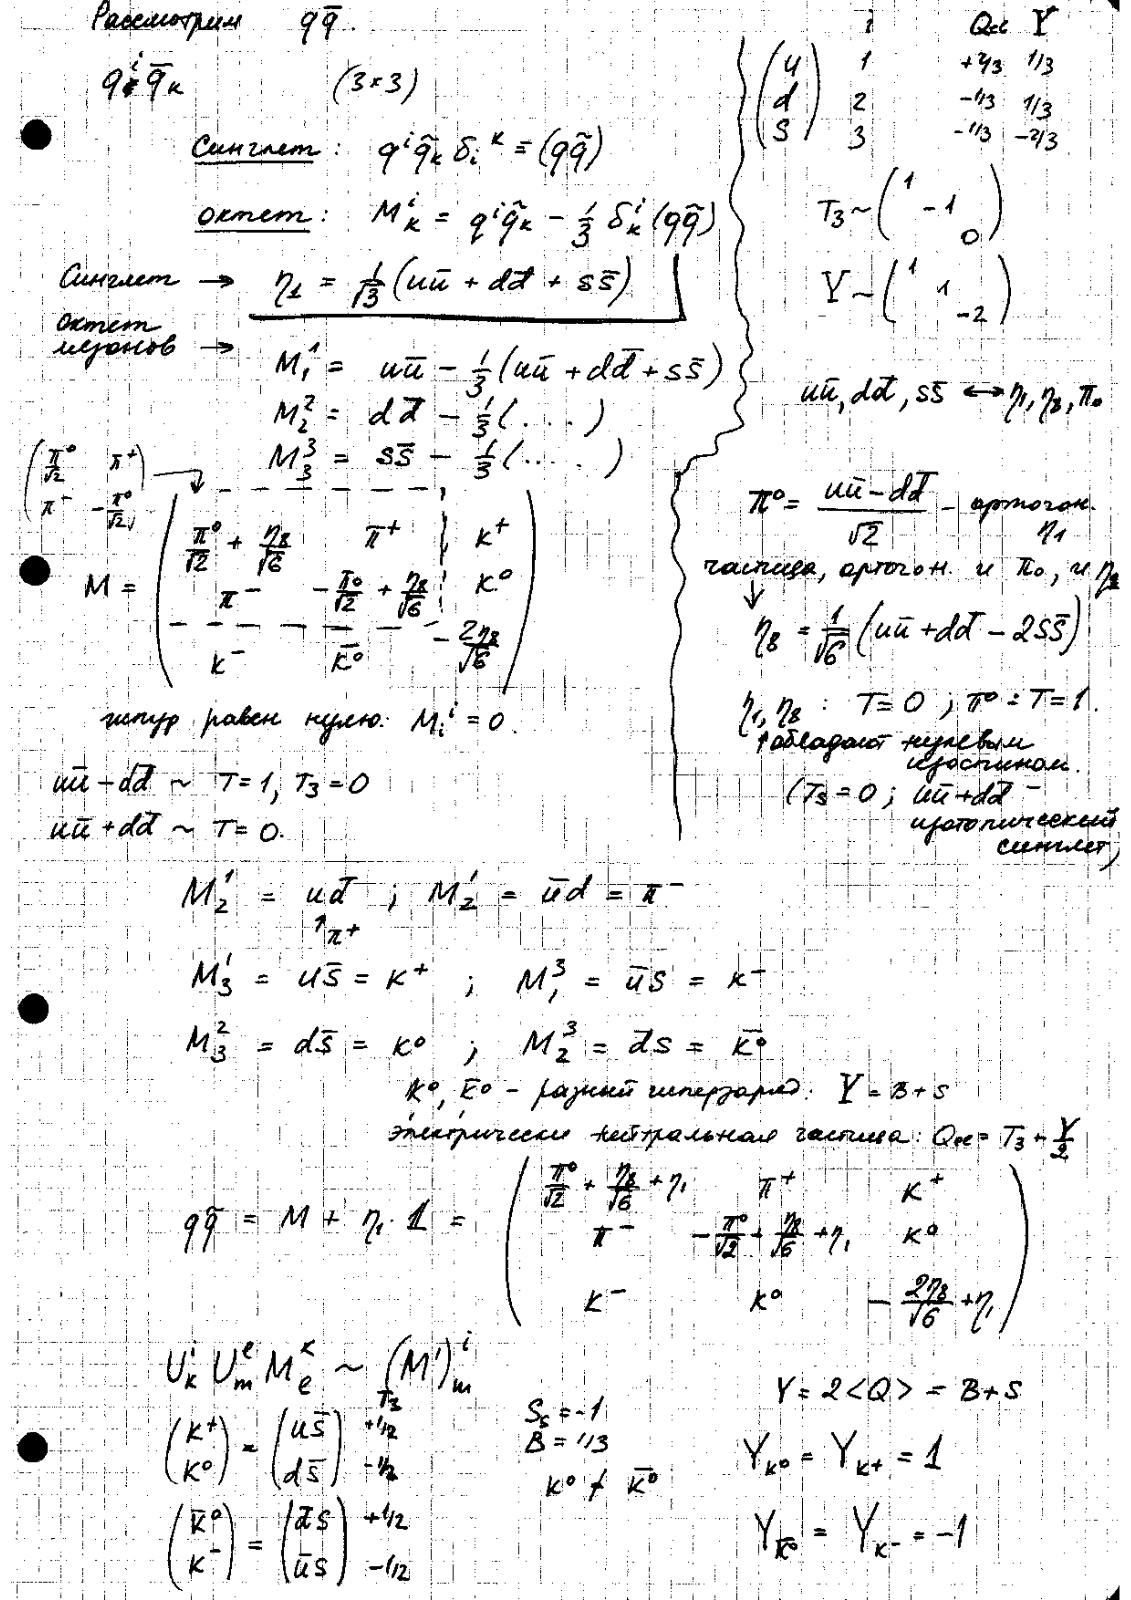 Рассмотрим q q̄.
q^i q̄_k (3×3)
Синглет: q^i q̄_k δ_i^k = (q q̄)
октет: M^i_k = q^i q̄_k − 1/3 δ^i_k (q q̄)
Синглет → η₁ = 1/√3 (uū + dd̄ + ss̄)
октет
мезонов →
M^1_1 = uū − 1/3 (uū + dd̄ + ss̄)
M^2_2 = dd̄ − 1/3 (. . . .)
M^3_3 = ss̄ − 1/3 (. . . . .)
( π⁰/√2 π⁺ )
( π⁻ −π⁰/√2 )
M =
( π⁰/√2 + η₈/√6 π⁺ K⁺ )
( π⁻ −π⁰/√2 + η₈/√6 K⁰ )
( K⁻ K̄⁰ −2η₈/√6 )
шпур равен нулю: M_i^i = 0
uū − dd̄ ~ T = 1, T₃ = 0
uū + dd̄ ~ T = 0.
i Qэл Y
u 1 +2/3 1/3
d 2 −1/3 1/3
s 3 −1/3 −2/3
T₃ ~ ( 1 −1 0 )
Y ~ ( 1 1 −2 )
uū, dd̄, ss̄ ↔ η₁, η₈, π₀
π⁰ = (uū − dd̄)/√2 − ортогон. η₁
частица, ортогон. и π₀, и η₁
↓
η₈ = 1/√6 (uū + dd̄ − 2ss̄)
η₁, η₈ : T = 0 ; π⁰ : T = 1.
↑ обладают нулевым
изоспином.
(T₃ = 0 ; uū + dd̄ −
изотопический
синглет)
M^1_2 = ud̄ ; M^1_2 = ūd = π⁻
↑π⁺
M^1_3 = us̄ = K⁺ ; M^3_1 = ūs = K⁻
M^2_3 = ds̄ = K⁰ ; M^3_2 = d̄s = K̄⁰
K⁰, K̄⁰ − разный гиперзаряд. Y = B + S
электрически нейтральная частица: Qэл = T₃ + Y/2
q q̄ = M + η₁ · 1 =
( π⁰/√2 + η₈/√6 + η₁ π⁺ K⁺ )
( π⁻ −π⁰/√2 + η₈/√6 + η₁ K⁰ )
( K⁻ K⁰ −2η₈/√6 + η₁ )
U^i_k U^e_m M^k_e ~ (M')^i_m
T₃
(K⁺) = (us̄) +1/2
(K⁰) (ds̄) −1/2
(K̄⁰) = (d̄s) +1/2
(K⁻) (ūs) −1/2
S_s = −1
B = 1/3
K⁰ ≠ K̄⁰
Y = 2<Q> = B + S
Y_K⁰ = Y_K⁺ = 1
Y_K̄⁰ = Y_K⁻ = −1